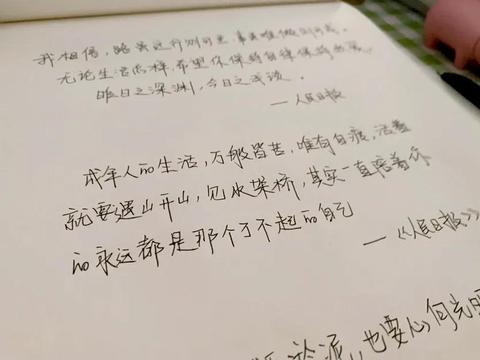 我相信,路虽远行则可至,事虽难做则可成。
无论生活怎样,希望你保持自律保持热爆,
昨日之深渊,今日之浅谈。
—人民日报
成年人的生活,万般皆苦,唯有自渡,活着
就要遇山开山,见水架桥,其实一直陪着你
的永远都是那个了不起的自己
—《人民日报》
也要心向光明